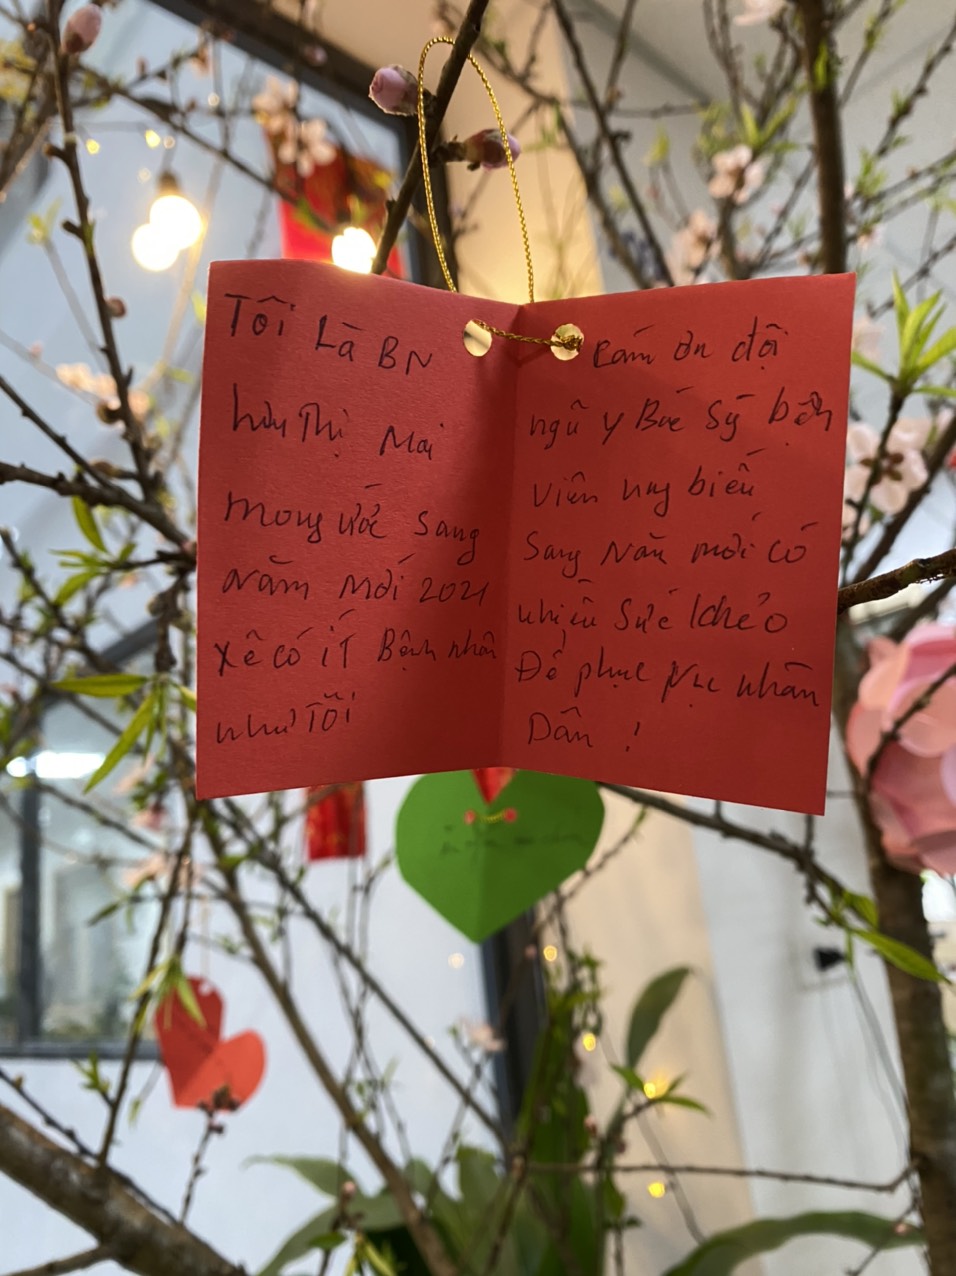 Tôi Là BN
hứu Thị Mai
mong ước sang
năm mới 2021
xẽ có ít Bệnh nhân
như Tôi
cám ơn đội
ngũ y Bác Sỹ bệnh
viên
Sang Năm mới có
nhiều Sức khẻo
Để phục vục nhân
Dân !